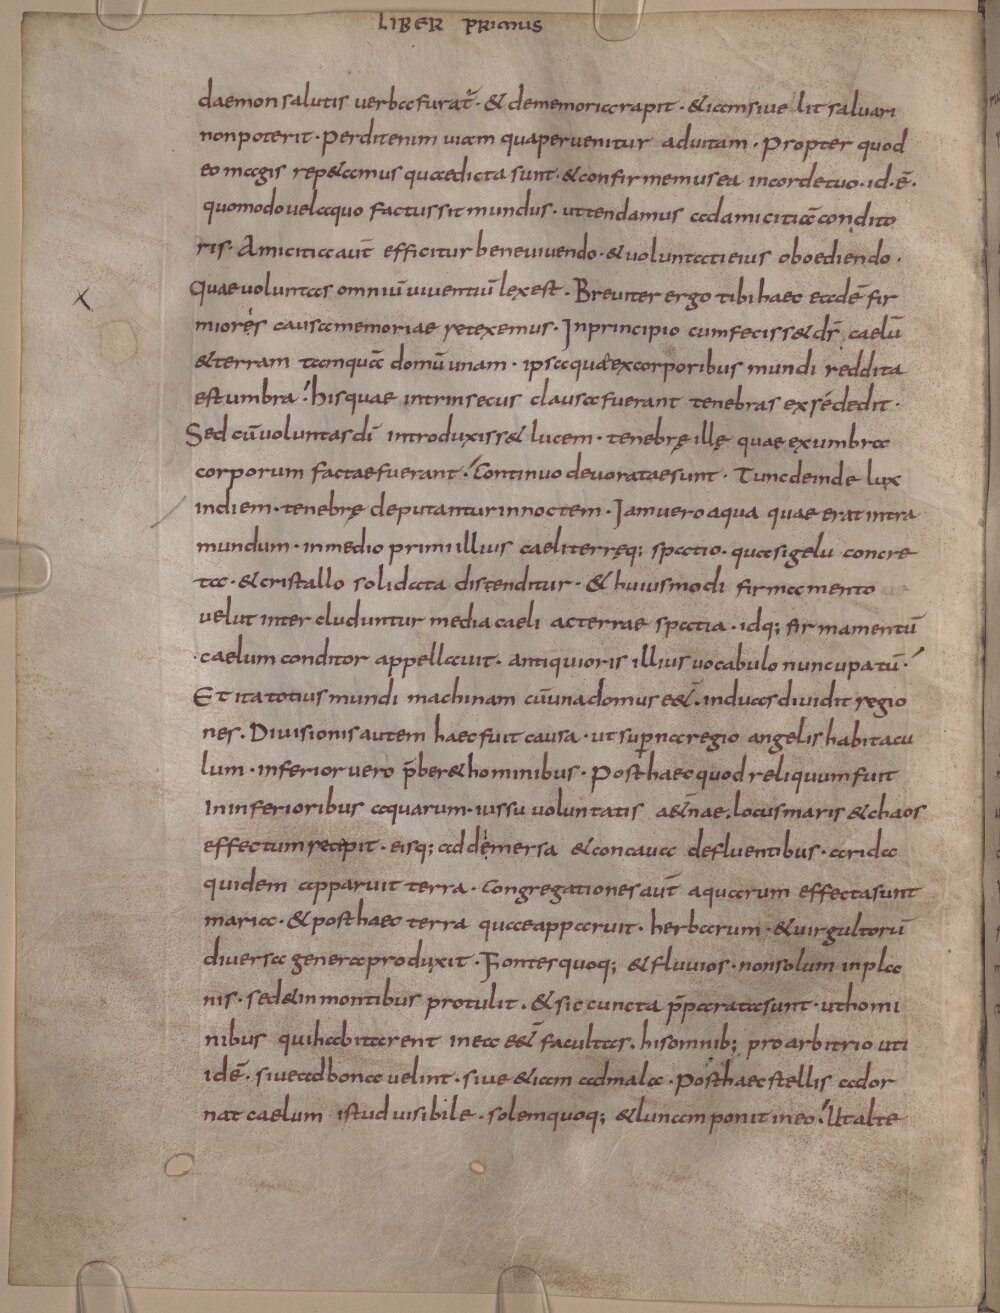 LIBER PRIMUS
daemon salutis verba furat̄ · & dememoria rapit · & iam sive lit salvari
non poterit · Perdit enim viam qua pervenitur ad vitam · Propter quod
eo magis rep&amus quae dicta sunt · & confirmemus ea in corde tuo · id · ē ·
quomodo vel a quo factus sit mundus · ut tendamus ad amicitiā condito
ris · Amicitia aut̄ efficitur bene vivendo · & voluntati eius oboediendo ·
Quae voluntas omniū viventiū lex est · Breviter ergo tibi haec eadē fir
miores causa memoriae retexemus · In principio cum feciss& d̄s caelū
& terram tamquā domū unam · ipsa quae ex corporibus mundi reddita
est umbra · his quae intrinsecus clausa fuerant tenebras ex se dedit ·
Sed cū voluntas dī introduxiss& lucem · tenebrę illę quae ex umbra
corporum factae fuerant · Continuo devoratae sunt · Tunc deinde lux
in diem · tenebrę deputantur in noctem · Iam vero aqua quae erat intra
mundum · in medio primi illius caeli terręq; spatio · quasi gelu concre
ta · & cristallo solidata distenditur · & huiusmodi firmamento
velut intercluduntur media caeli ac terrae spatia · idq; firmamentū
caelum conditor appellavit · antiquioris illius vocabulo nuncupatū ·
Et ita totius mundi machinam cū una domus ee&̄ · in duas dividit regio
nes · Divisionis autem haec fuit causa · ut sup̄na regio angelis habitacu
lum · inferior vero p̄ber& hominibus · Post haec quod reliquum fuit
In inferioribus aquarum · iussu voluntatis a&̄nae · locus maris & chaos
effectum recipit · eisq; ad demersa & concava defluentibus · arida
quidem apparuit terra · Congregationes aut̄ aquarum effecta sunt
maria · & post haec terra quae apparuit · herbarum · & virgultorū
diversa genera produxit · Fontes quoq; & fluvios · non solum in pla
nis · sed & in montibus protulit · & sic cuncta p̄parata sunt · ut homi
nibus qui habitarent in ea ee&̄ facultas · his omnib; pro arbitrio uti
idē · sive ad bona velint · sive & iam ad mala · Post haec stellis ador
nat caelum istud visibile · solem quoq; & lunam ponit in eo · Ut alte